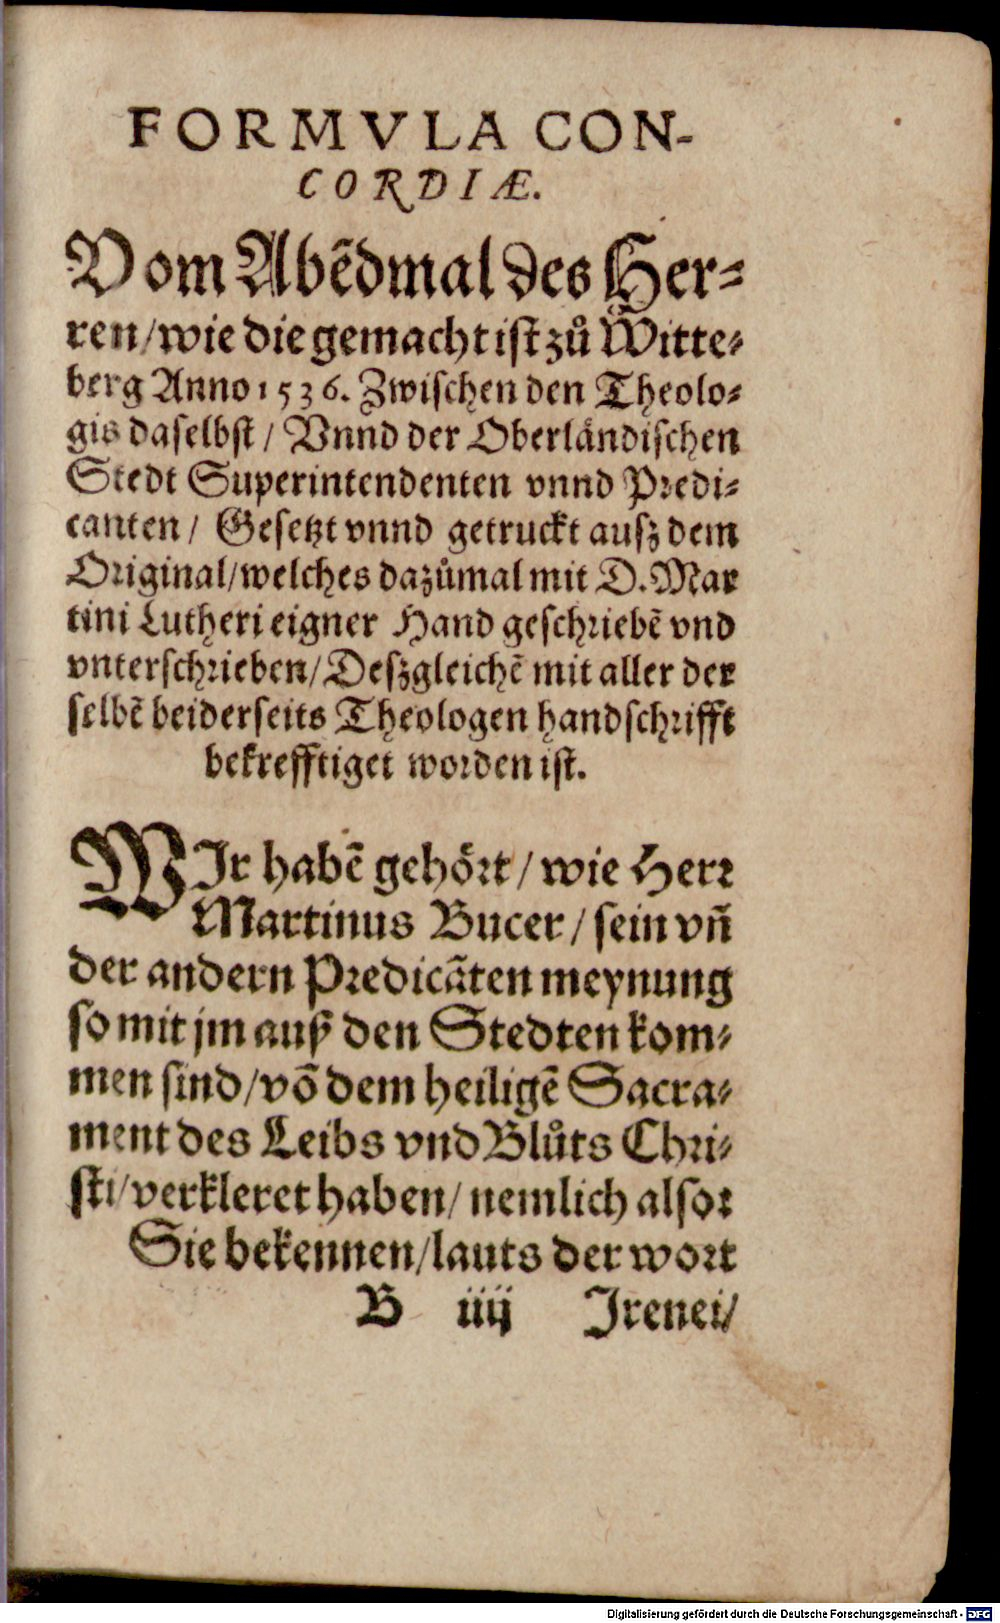 FORMVLA CON-
CORDIÆ.
Vom Abẽdmal des Her-
ren/wie die gemacht ist zů Witte-
berg Anno 1536. Zwischen den Theolo-
gis daselbst/ Vnnd der Oberländischen
Stedt Superintendenten vnnd Predi-
canten/ Gesetzt vnnd getruckt ausz dem
Original/welches dazůmal mit D. Mar
tini Lutheri eigner Hand geschriebẽ vnd
vnterschrieben/Deszgleichẽ mit aller der
selbẽ beiderseits Theologen handschrifft
bekrefftiget worden ist.
WIr habẽ gehört/ wie Herr
Martinus Bucer/ sein vñ
der andern Predicãten meynung
so mit jm auß den Stedten kom-
men sind/võ dem heiligẽ Sacra-
ment des Leibs vnd Blůts Chri-
sti/verkleret haben/ nemlich also:
Sie bekennen/lauts der wort
B iiij Irenei/
Digitalisierung gefördert durch die Deutsche Forschungsgemeinschaft - DFG